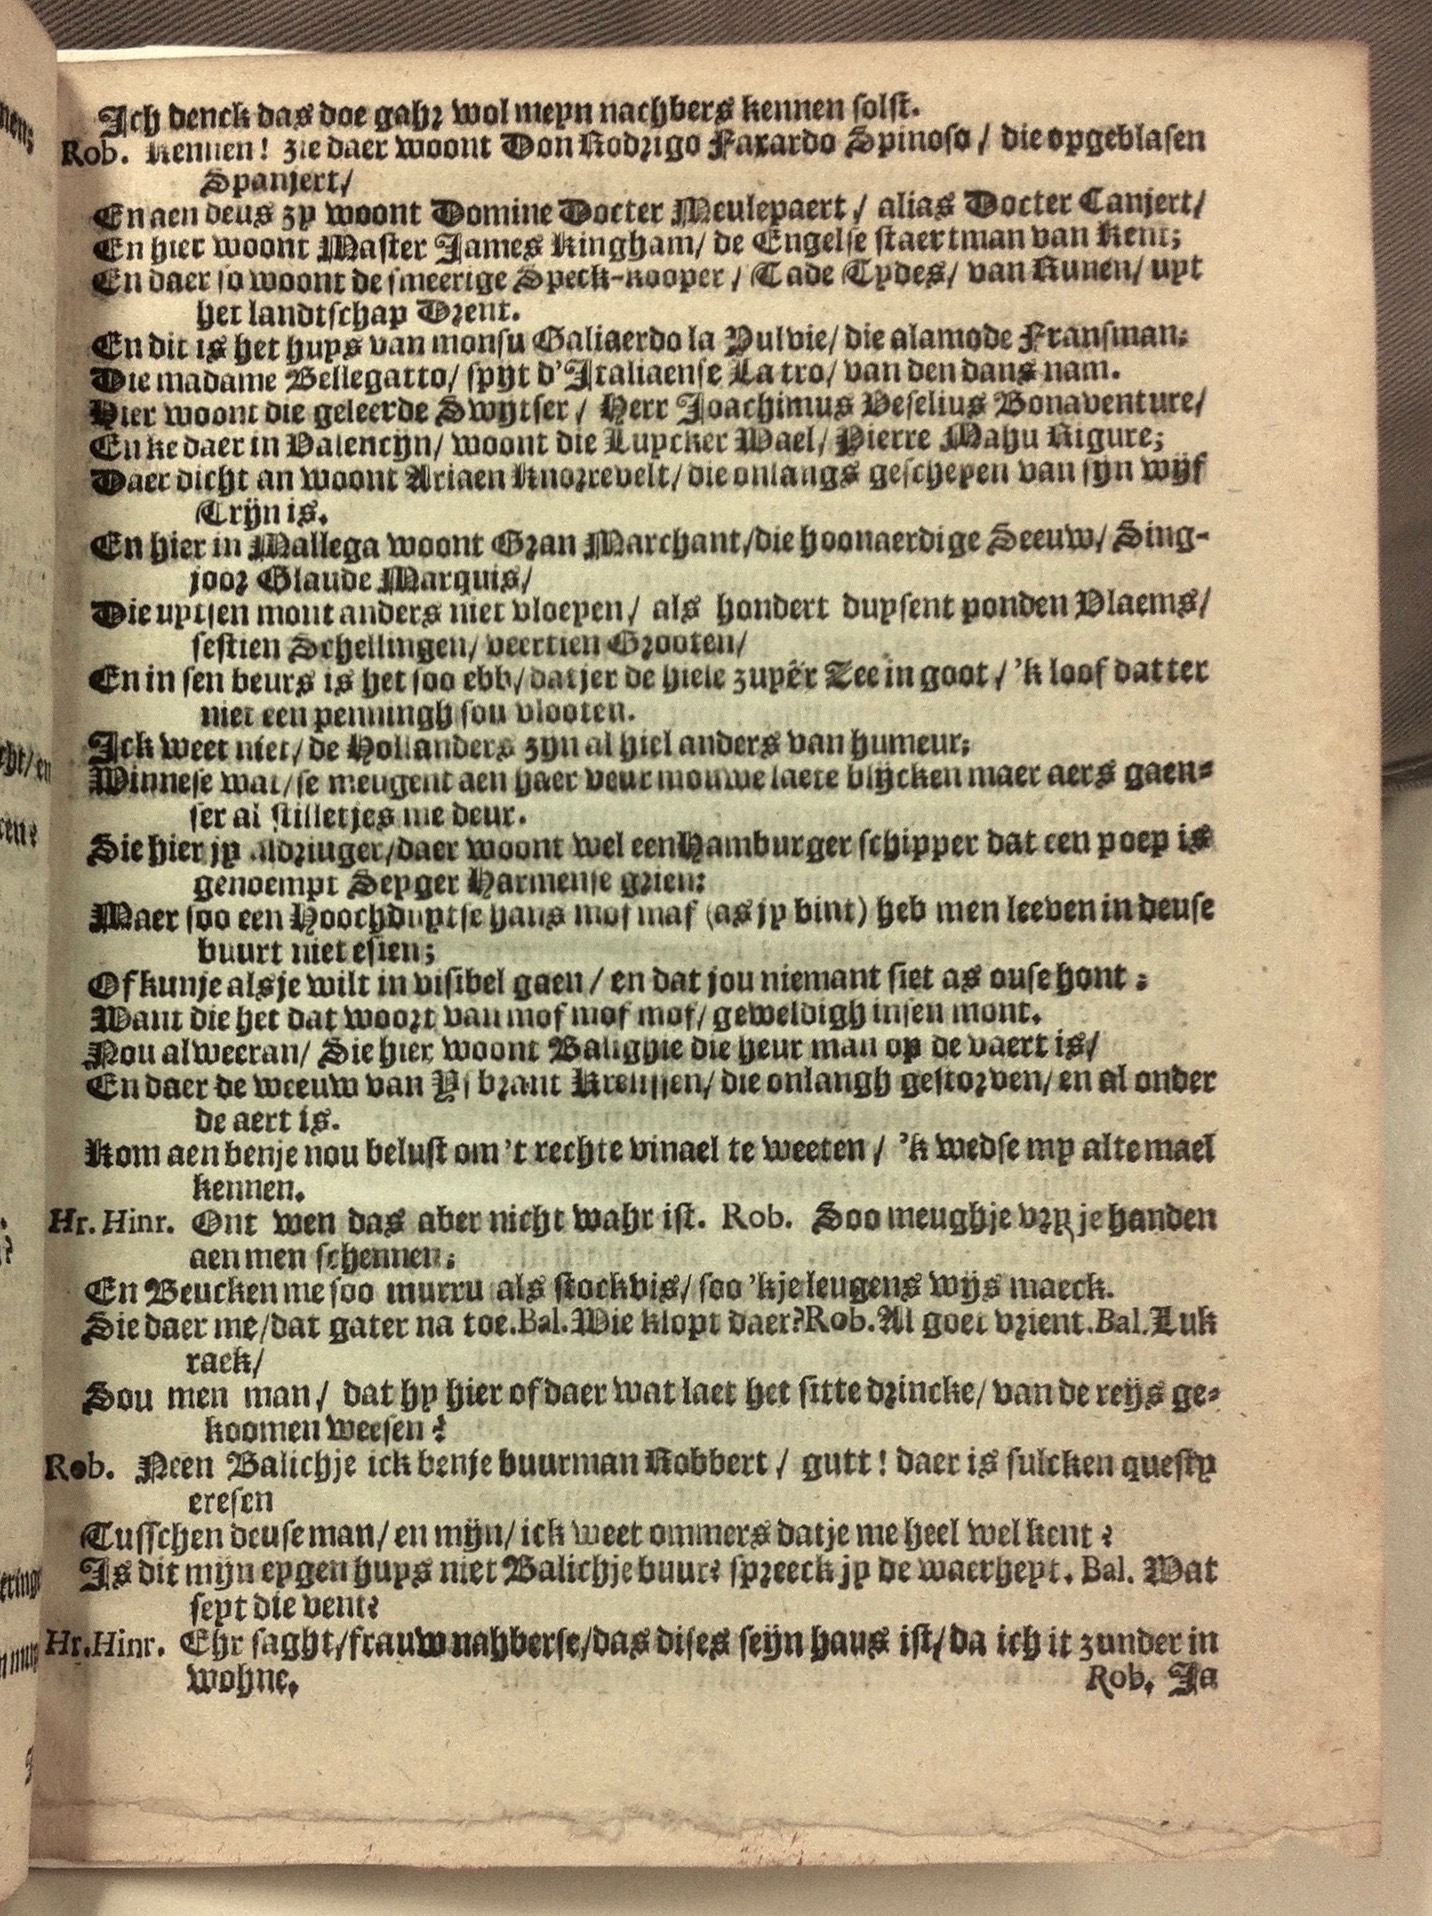 Ich denck das doe gahr wol meyn nachbers kennen solst.
Rob. Kennen! zie daer woont Don Rodrigo Faxardo Spinoso / die opgeblasen
Spanjert/
En aen deus zy woont Domine Docter Meulepaert / alias Docter Canjert/
En hier woont Master James Kingham/ de Engelse staertman van Kent;
En daer so woont de smeerige Speck-kooper / Tade Tydes/ van Runen/ upt
het landtschap Drent.
En dit is het huys van monsu Galiaerdo la Pulvie/ die alamode Fransman:
Die madame Bellegatto/ spyt d'Italiaense Latro/ van den dans nam.
Hier woont die geleerde Swytser / Herr Joachimus Veselius Bonaventure/
En ke daer in Valencijn/ woont die Luycker Wael/ Pierre Mahu Rigure;
Daer dicht an woont Ariaen Knorrevelt/ die onlangs geschepen van sijn wijf
Trijn is.
En hier in Mallega woont Gran Marchant/die hoonaerdige Seeuw/ Sing-
joor Glaude Marquis/
Die uptsen mont anders niet vloepen/ als hondert duysent ponden Vlaems/
sestien Schellingen/ veertien Grooten/
En in sen beurs is het soo ebb/ datjer de hiele zuyer Zee in goot / 'k loof datter
niet een penningh sou vlooten.
Ick weet niet/ de Hollanders zyn al hiel anders van humeur;
Winnese wat/se meugent aen haer veur mouwe laete blijcken maer aers gaen-
ser al stilletjes me deur.
Sie hier jy /daer woont wel een Hamburger schipper dat een poep is
genoempt Seyger Harmense grien:
Maer soo een Hoochduytse hans mof maf (as jy bint) heb men leeven in deuse
buurt niet esien;
Of kunje als je wilt in visibel gaen / en dat jou niemant siet as onse hont :
Want die het dat woort van mof mof mof/ geweldigh in sen mont.
Nou alweeran/ Sie hier woont Balighie die heur man op de vaert is/
En daer de weeuw van Ysbrant Kreussen/ die onlangh gestorven/ en al onder
de aert is.
Kom aen benje nou belust om 't rechte vinael te weeten / 'k wedse my altemael
kennen.
Hr. Hinr. Ont wen das aber nicht wahr ist. Rob. Soo meughje vry je handen
aen men schennen:
En Beucken me soo murru als stockvis/ soo 'kje leugens wijs maeck.
Sie daer me/dat gater na toe. Bal. Wie klopt daer? Rob. Al goet vrient. Bal. Luk
raek/
Sou men man / dat hy hier of daer wat laet het sitte drincke/ van de reys ge-
koomen weesen ?
Rob. Neen Balichje ick benje buurman Robbert / gutt! daer is sulcken questy
eresen
Tusschen deuse man/ en mijn/ ick weet ommers datje me heel wel kent ?
Is dit mijn eygen huys niet Balichje buur? spreeck jy de waerheyt. Bal. Wat
seyt die vent?
Hr. Hinr. Ehr saght/frauw nahberse/das dises seijn haus ist/da ich it zunder in
wohne. Rob. Ja